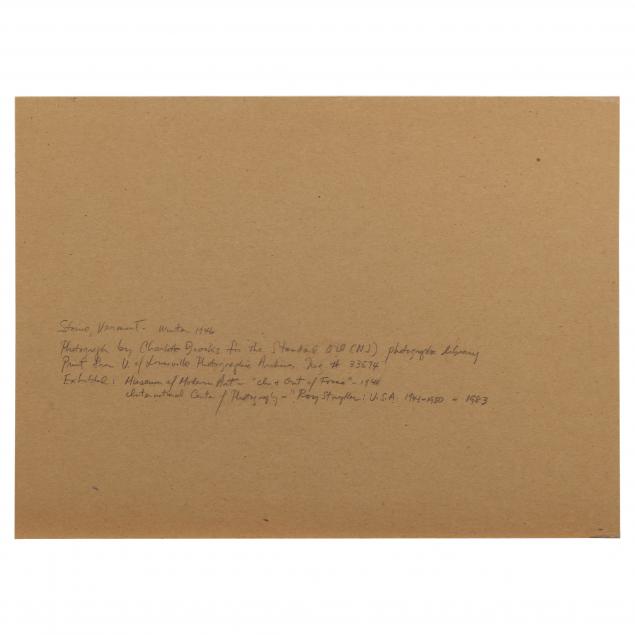 Stowe, Vermont - Winter 1946
Photograph by Charlotte Brooks for the Standard Oil (NJ) photographic library
Print from U. of Louisville Photographic Archives Neg # 33574
Exhibited: Museum of Modern Art - "In & Out of Focus" - 1948
International Center of Photography - "Roy Stryker: U.S.A. 1943-1950 - 1983